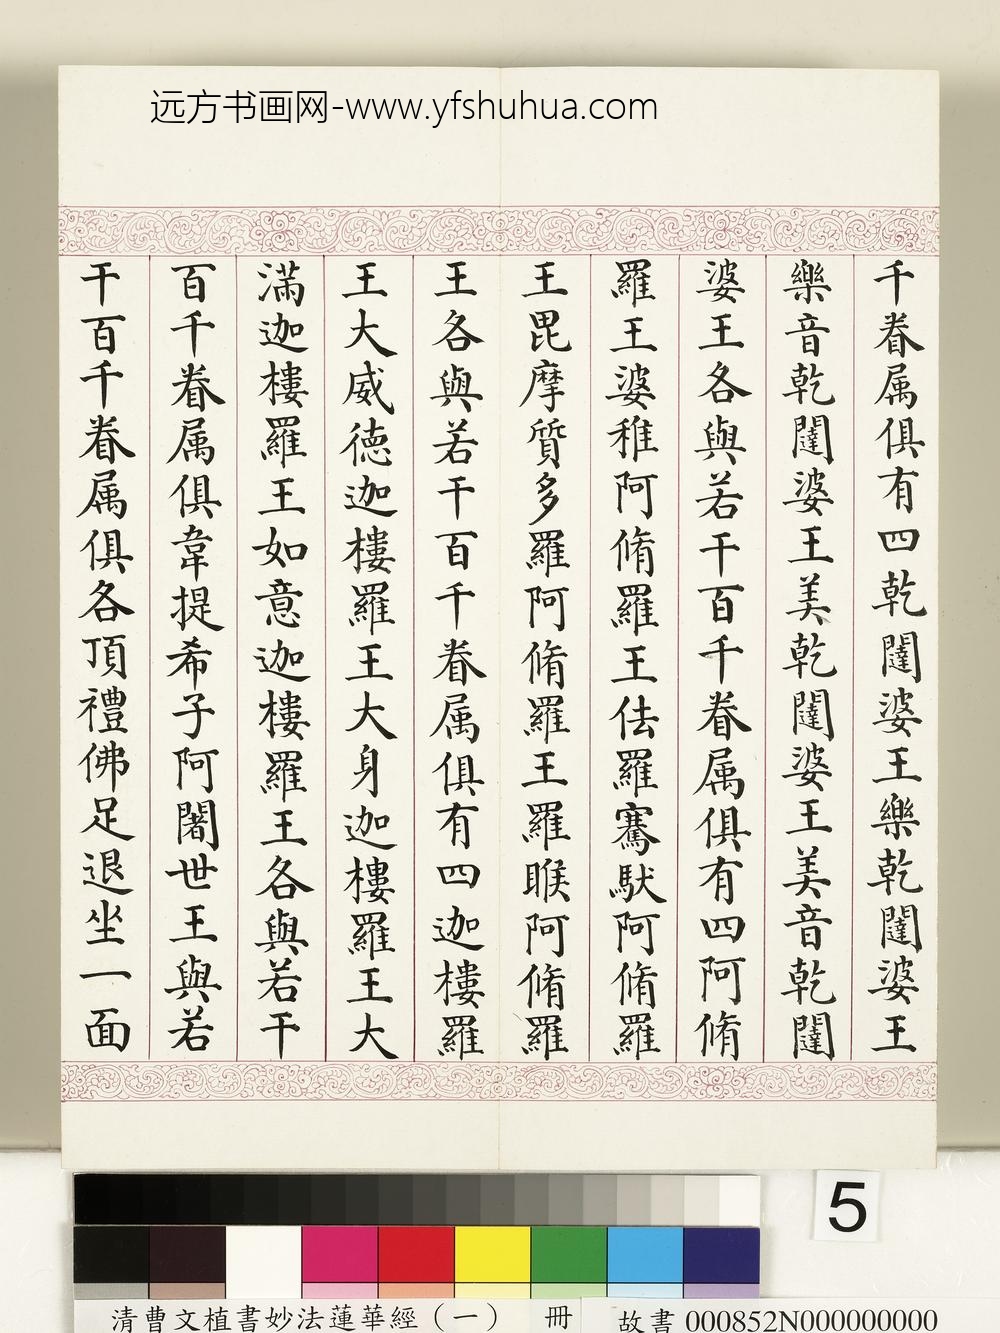 远方书画网-www.yfshuhua.com
千眷属俱有四乾闥婆王樂乾闥婆王
樂音乾闥婆王美乾闥婆王美音乾闥
婆王各與若干百千眷属俱有四阿脩
羅王婆稚阿脩羅王佉羅騫馱阿脩羅
王毘摩質多羅阿脩羅王羅睺阿脩羅
王各與若干百千眷属俱有四迦樓羅
王大威德迦樓羅王大身迦樓羅王大
滿迦樓羅王如意迦樓羅王各與若干
百千眷属俱韋提希子阿闍世王與若
干百千眷属俱各頂禮佛足退坐一面
5
清曹文植書妙法蓮華經（一） 冊
故書000852N000000000